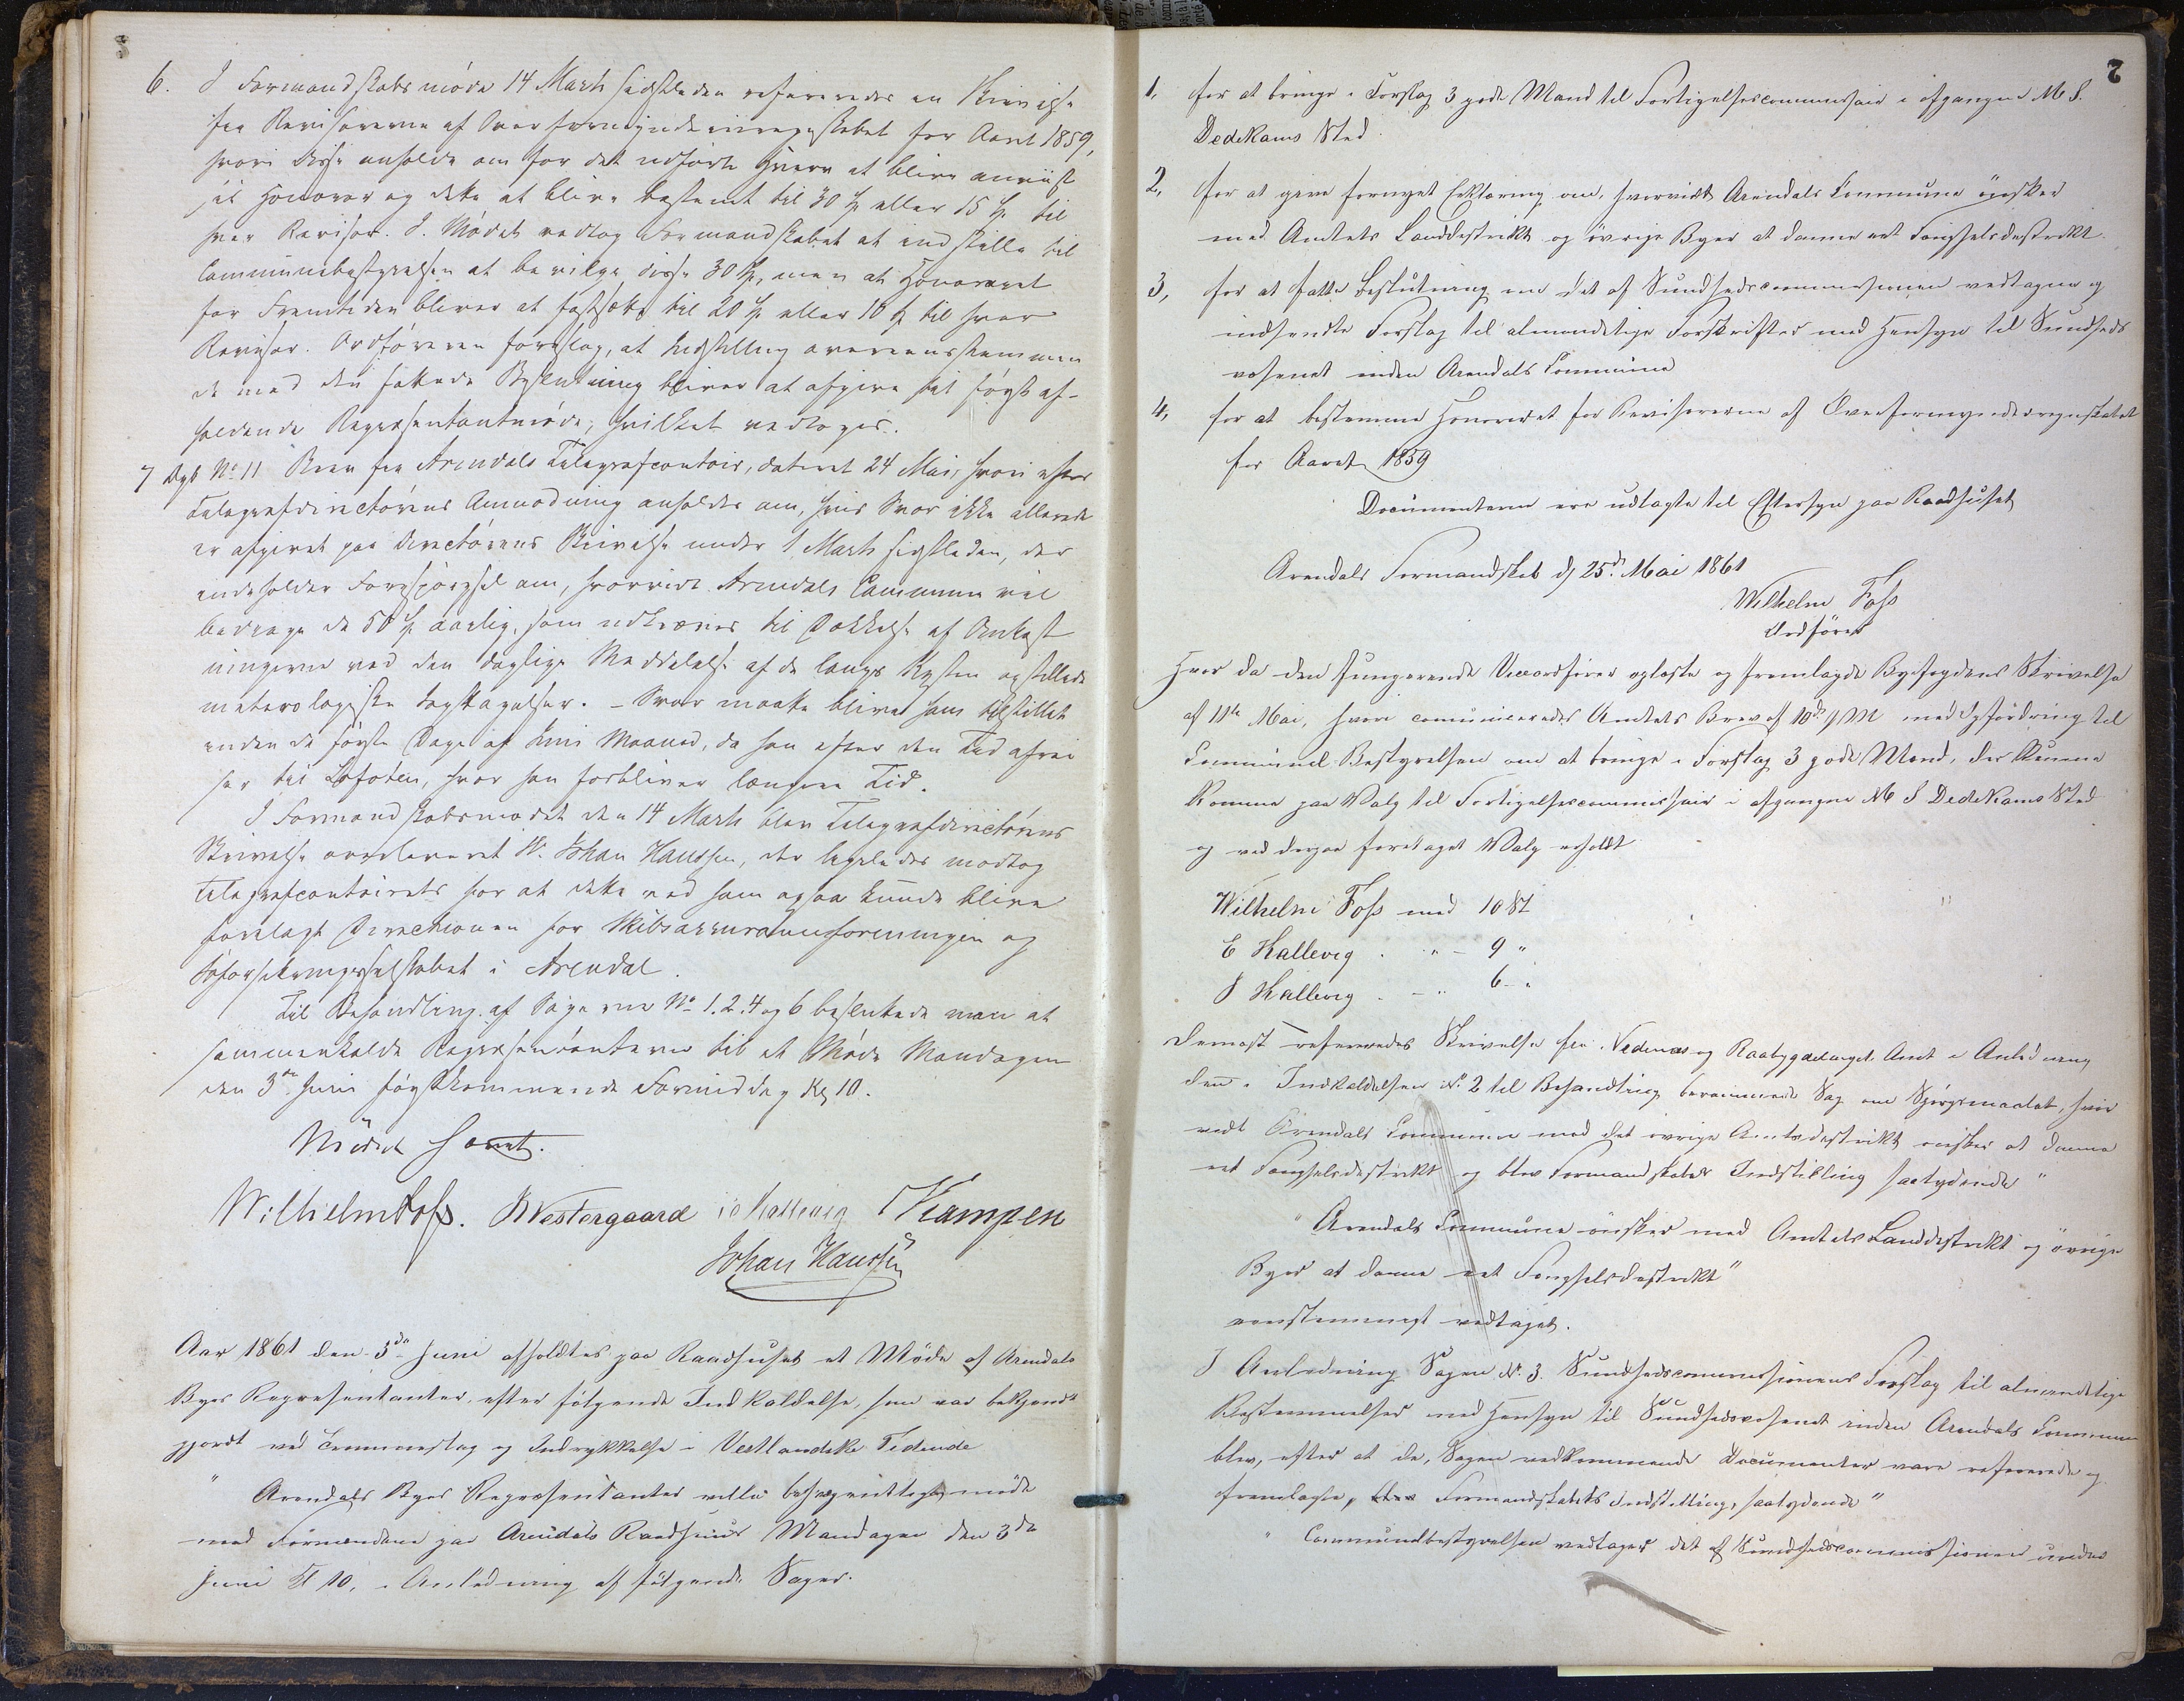 6. I Formandskabsmöde 14 Marts sidstleden refereredes en Skrivelse
fra Revisorerne af Overformynderiregnskabet for Aaret 1859,
hvori disse anholde om for det udförte Hverv at blive anviist
sit Honorar og dette at blive bestemt til 30 Sp eller 15 Sp til
hver Revisor. I Mödet vedtog Formandskabet at indstille til
Communebestyrelsen at bevilge disse 30 Sp, men at Honoraret
for Fremtiden bliver at fastsætte til 20 Sp eller 10 Sp til hver
Revisor. Ordföreren foreslog, at Indstilling overeensstemmen
de med den fattede Beslutning bliver at afgive til först af-
holdende Repræsentantmöde, hvilket vedtoges.
7 Dgb No 11 Brev fra Arendals Telegrafcontoir, dateret 24 Mai, hvori efter
Telegrafdirectörens Anmodning anholdes om, hvis Svar ikke allerede
er afgivet paa Directörens Skrivelse under 1 Marts sidstleden, der
indeholder Forespörgsel om, hvorvidt Arendals Commune vil
bidrage de 50 Sp aarlig, som udkræves til Dækkelse af Omkost
ningerne ved den daglige Meddelelse af de langs Kysten opstillede
meterologiske Iagttagelser. - Svar maatte blive ham tilstillet
inden de förste Dage af Juni Maaned, da han efter den Tid afrei
ser til Lofoten, hvor han forbliver længere Tid.
I Formandskabsmödet den 14 Marts blev Telegrafdirectörens
Skrivelse overleveret Hr. Johan Hanssen, der ligeledes modtog
Telegrafcontoirets for at dette ved ham ogsaa kunde blive
forelagt Directionen for Skibsassuranceforeningen og
Söforsikringsselskabet i Arendal.
Til Behandling af Sagerne No 1.2.4 og 6 besluttede man at
sammenkalde Repræsentanterne til et Möde Mandagen
den 3de Juni förstkommende Formiddag Kl 10.
Mödet hævet.
Wilhelm Foss. Westergaard Kallevig Kampen
Johan Hanssen
Aar 1861 den 3de Juni afholdtes paa Raadhuset et Möde af Arendals
Byes Repræsentanter, efter fölgende Indkaldelse, som var bekjendt
gjordt ved Trommeslag og Indrykkelse i Vestlandske Tidende
" Arendals Byes Repræsentanter ville behageligst möde
med Formændene paa Arendals Raadhuus Mandagen den 3de
Juni Kl 10, i Anledning af fölgende Sager.
7
1, for at bringe i Forslag 3 gode Mænd til Fortigelsescommissair i afgangne M S.
Dedekams Sted.
2, for at give fornyet Erklæring om, hvorvidt Arendals Commune önsker
med Amtets Landdistrikt og övrige Byer at danne eet Fængselsdistrikt.
3, for at fatte Beslutning om det af Sundhedscommissionen vedtagne og
indsendte Forslag til almindelige Forskrifter med Hensyn til Sundheds
væsenet inden Arendals Commune
4, for at bestemme Honoraret for Revisorerne af Overformynderregnskabet
for Aaret 1859
Documenterne ere udlagte til Eftersyn paa Raadhuset
Arendals Formandskab d. 25de Mai 1861
Wilhelm Foss
Ordförer
Hvor da den fungerende Viceordförer oplæste og fremlagde Byfogdens Skrivelse
af 11te Mai, hvori comuniceredes Amtets Brev af 10de s/M med Opfordring til
Communal-Bestyrelsen om at bringe i Forslag 3 gode Mænd, der kunne
komme paa Valg til Fortigelsescommissair i afgangne M S Dedekams Sted
og ved derpaa foretaget Valg erholdt
Wilhelm Foss med 10 St
E Kallevig . " - 9 "
J Kallevig . - " 6 - "
Dernæst refereredes Skrivelse fra Nedenæs og Raabygdelaugets Amt i Anledning
den i Indkaldelsen No 2 til Behandling berammede Sag om Spörgsmaalet, hvor
vidt Arendals Commune med det övrige Amtsdistrikt önsker at danne
eet Fængselsdistrikt og blev Formandskabets Indstilling saalydende "
" Arendals Commune önsker med Amtets Landdistrikt og övrige
Byer at danne eet Fængselsdistrikt"
eenstemmigt vedtaget.
I Anledning Sagen No. 3. Sundhedscommissionens Forslag til almindelige
Bestemmelser med Hensyn til Sundhedsvæsenet inden Arendals Commune
blev, efter at de, Sagen vedkommende Documenter vare refererede og
fremlagte, blev Formandskabets Indstilling, saalydende"
" Communebestyrelsen vedtager det af Sundhedscommissionen under